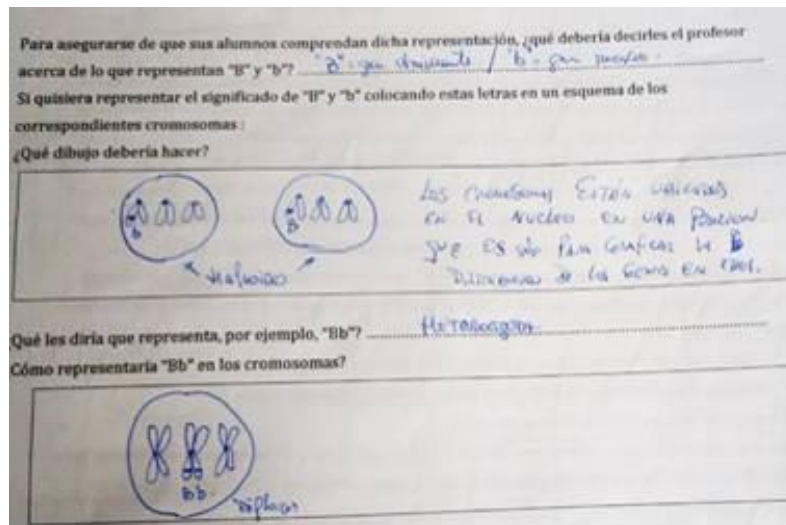 Para asegurarse de que sus alumnos comprendan dicha representación, ¿qué debería decirles el profesor
acerca de lo que representan "B" y "b"? "B" = gen dominante / "b" = gen recesivo.
Si quisiera representar el significado de "B" y "b" colocando estas letras en un esquema de los
correspondientes cromosomas :
¿Qué dibujo debería hacer?
Los cromosomas ESTÁN UBICADOS
b
B
EN EL NUCLEO EN UNA POSICION
QUE ES SÓLO PARA GRAFICAR LA
haploides
DE LOS GENES EN
Qué les diría que representa, por ejemplo, "Bb"?
Cómo representaría "Bb" en los cromosomas?
Bb